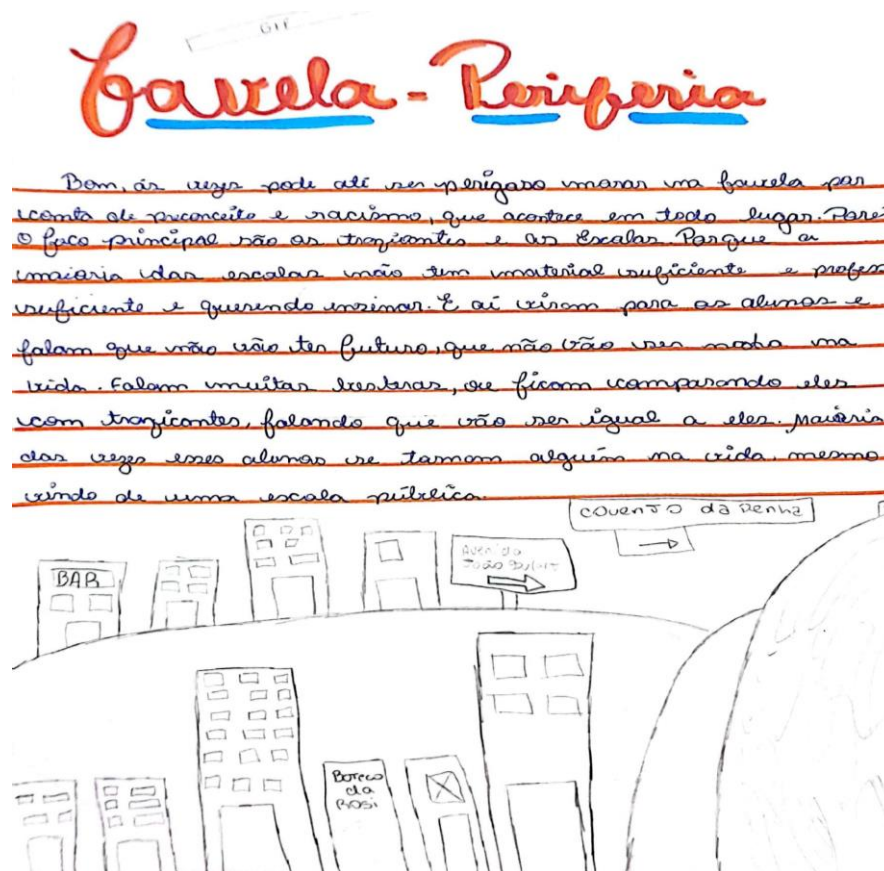 GIF
Favela - Periferia
Bom, ás vezes pode até ser perigaso morar na favela por
conta de preconceito e racismo, que acontece em todo lugar. Porei
O foco principal são os traficantes e as Escolas. Porque a
maioria das escolas não tem material suficiente e profess
suficiente e querendo ensinar. E aí viram para os alunos e
falam que não vão ter futuro, que não vão ser nada na
vida. Falam muitas besteras, ou ficam comparando eles
com traficantes, falando que vão ser igual a eles. Maioria
das vezes esses alunos se tornam alguém na vida, mesmo
vindo de uma escola pública.
COVENTO da Penha
Avenida
João
BAR
Boteco
da
Rosi